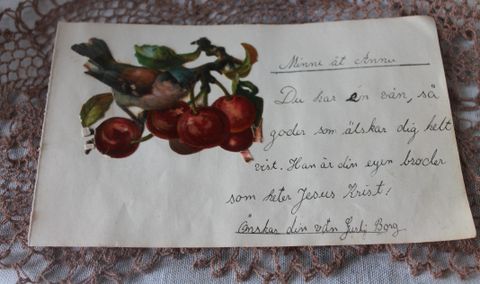 Minne åt Anna
Du har en vän, så
goder som älskar dig helt
vist. Han är din egen broder
som heter Jesus Krist!
Önskar din vän Borg